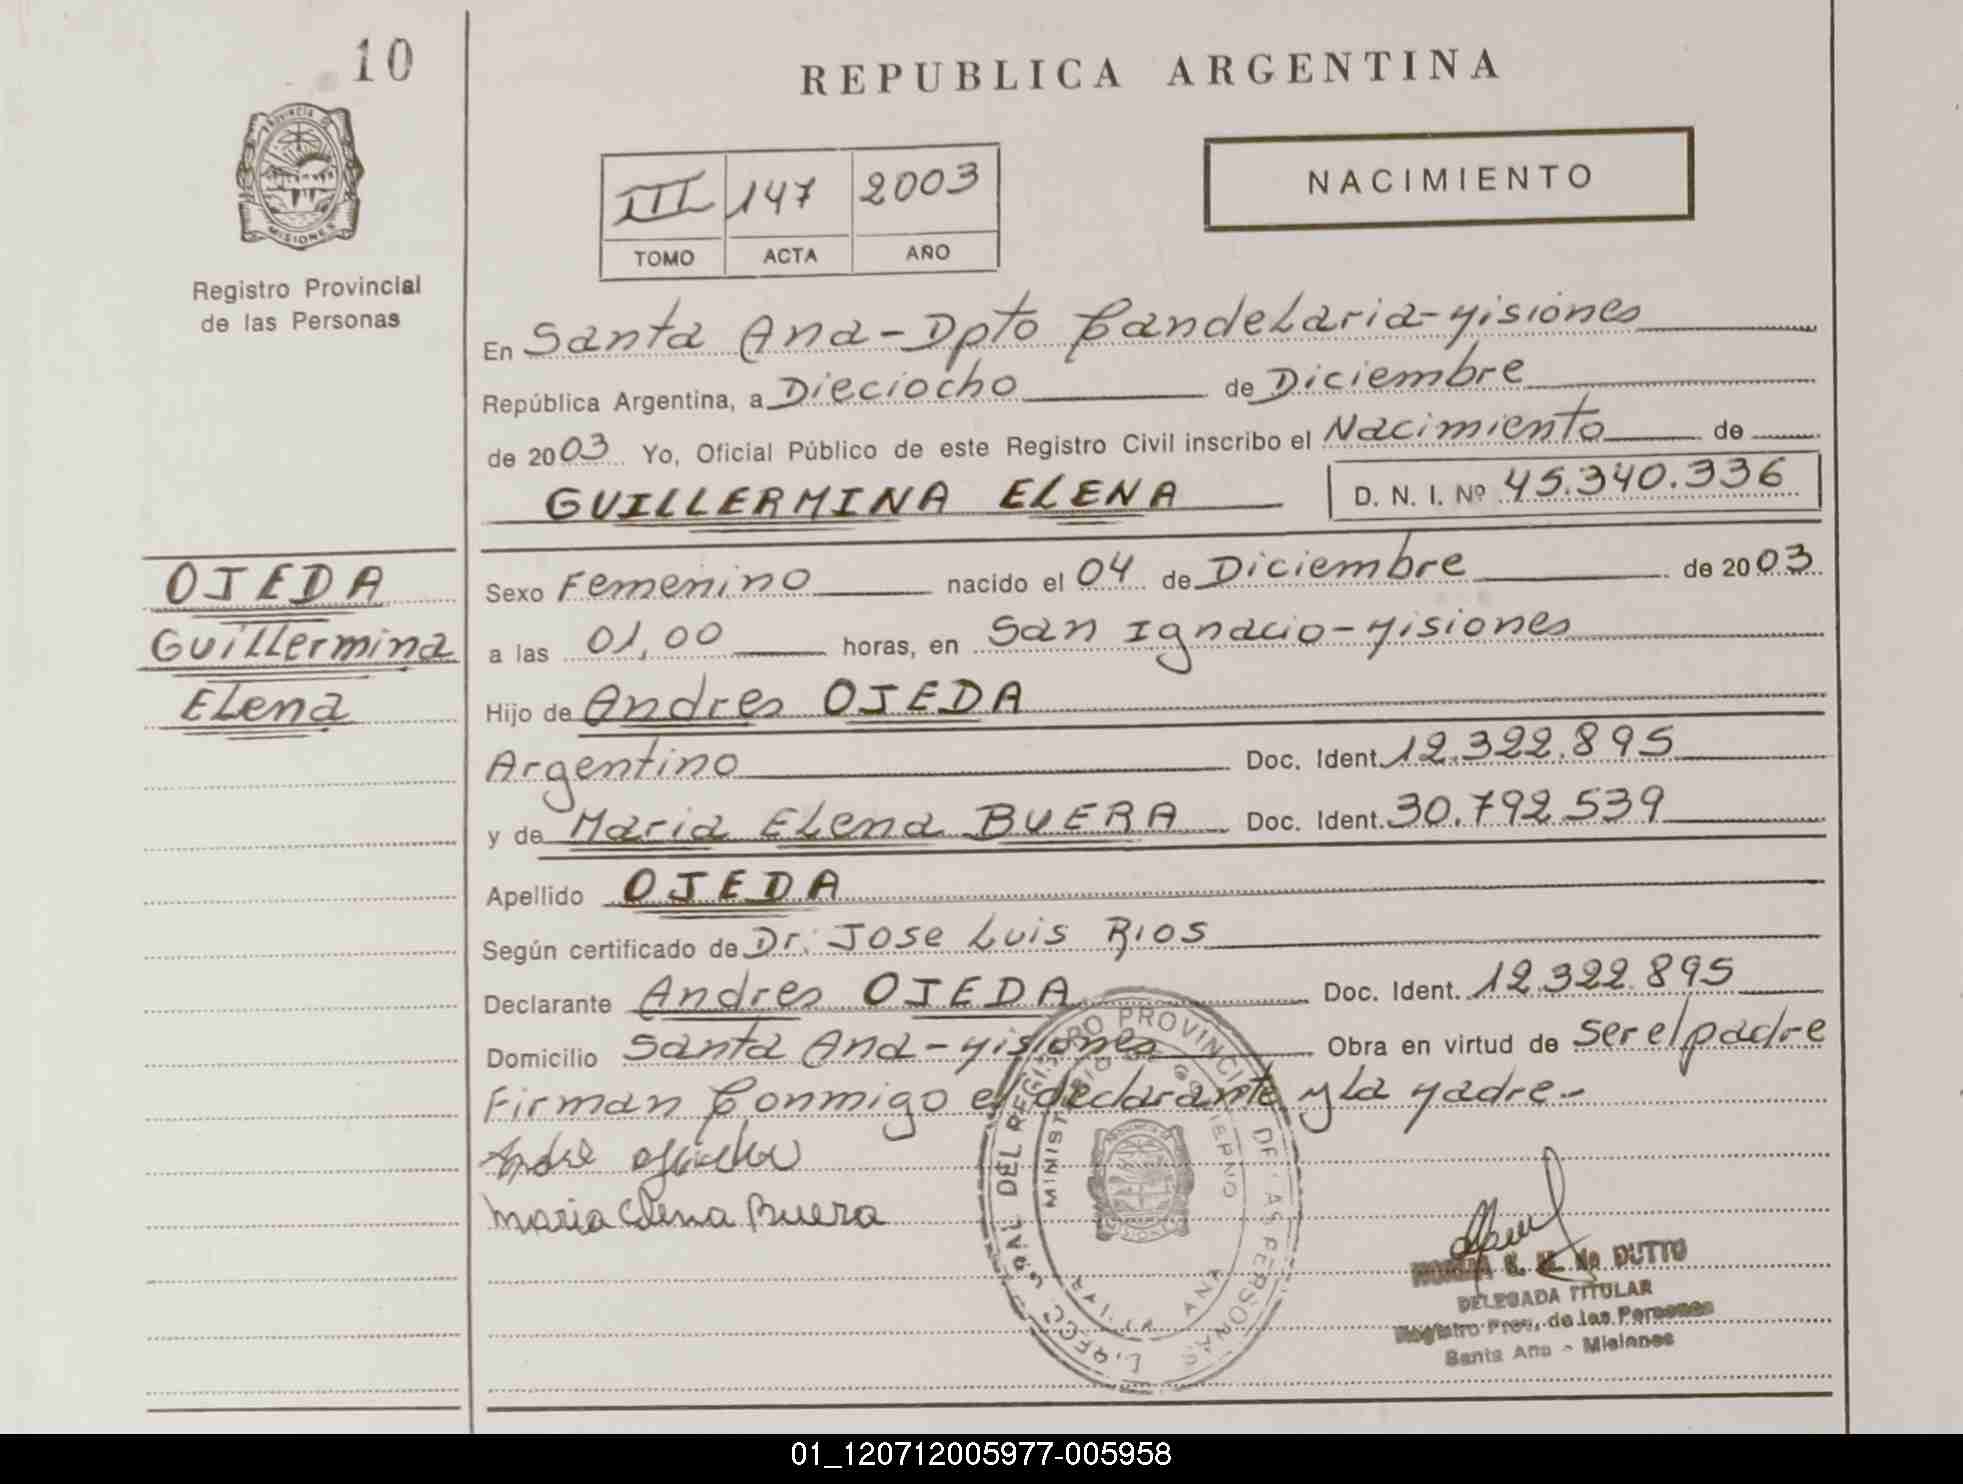 10
REPUBLICA ARGENTINA
PROVINCIA DE
MISIONES
Registro Provincial
de las Personas
III 147 2003
TOMO ACTA AÑO
NACIMIENTO
En Santa Ana-Dpto Candelaria-Misiones
República Argentina, a Dieciocho de Diciembre
de 2003 Yo, Oficial Público de este Registro Civil inscribo el Nacimiento de
GUILLERMINA ELENA D. N. I. Nº 45.340.336
OJEDA
Guillermina
Elena
Sexo Femenino nacido el 04 de Diciembre de 2003
a las 01,00 horas, en San Ignacio-Misiones
Hijo de Andres OJEDA
Argentino Doc. Ident. 12.322.895
y de Maria Elena BUERA Doc. Ident. 30.792.539
Apellido OJEDA
Según certificado de Dr. Jose Luis Rios
Declarante Andres OJEDA Doc. Ident. 12.322.895
Domicilio Santa Ana-Misiones Obra en virtud de ser el padre
Firman Conmigo el declarante y la Madre.-
Maria Elena Buera
DEL REGISTRO PROVINCIAL DE LAS PERSONAS
MINISTERIO DE GOBIERNO
de DUTTO
DELEGADA TITULAR
Registro Prov. de las Personas
Santa Ana - Misiones
01_120712005977-005958